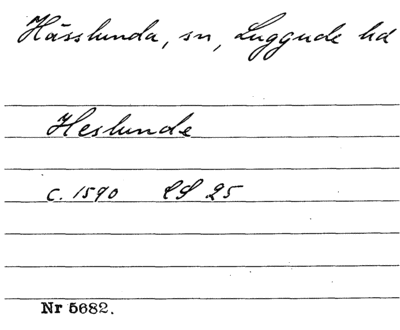 Hässlunda, sn, Luggude hd
Heslunde
c. 1590 LS 25
Nr 5682.